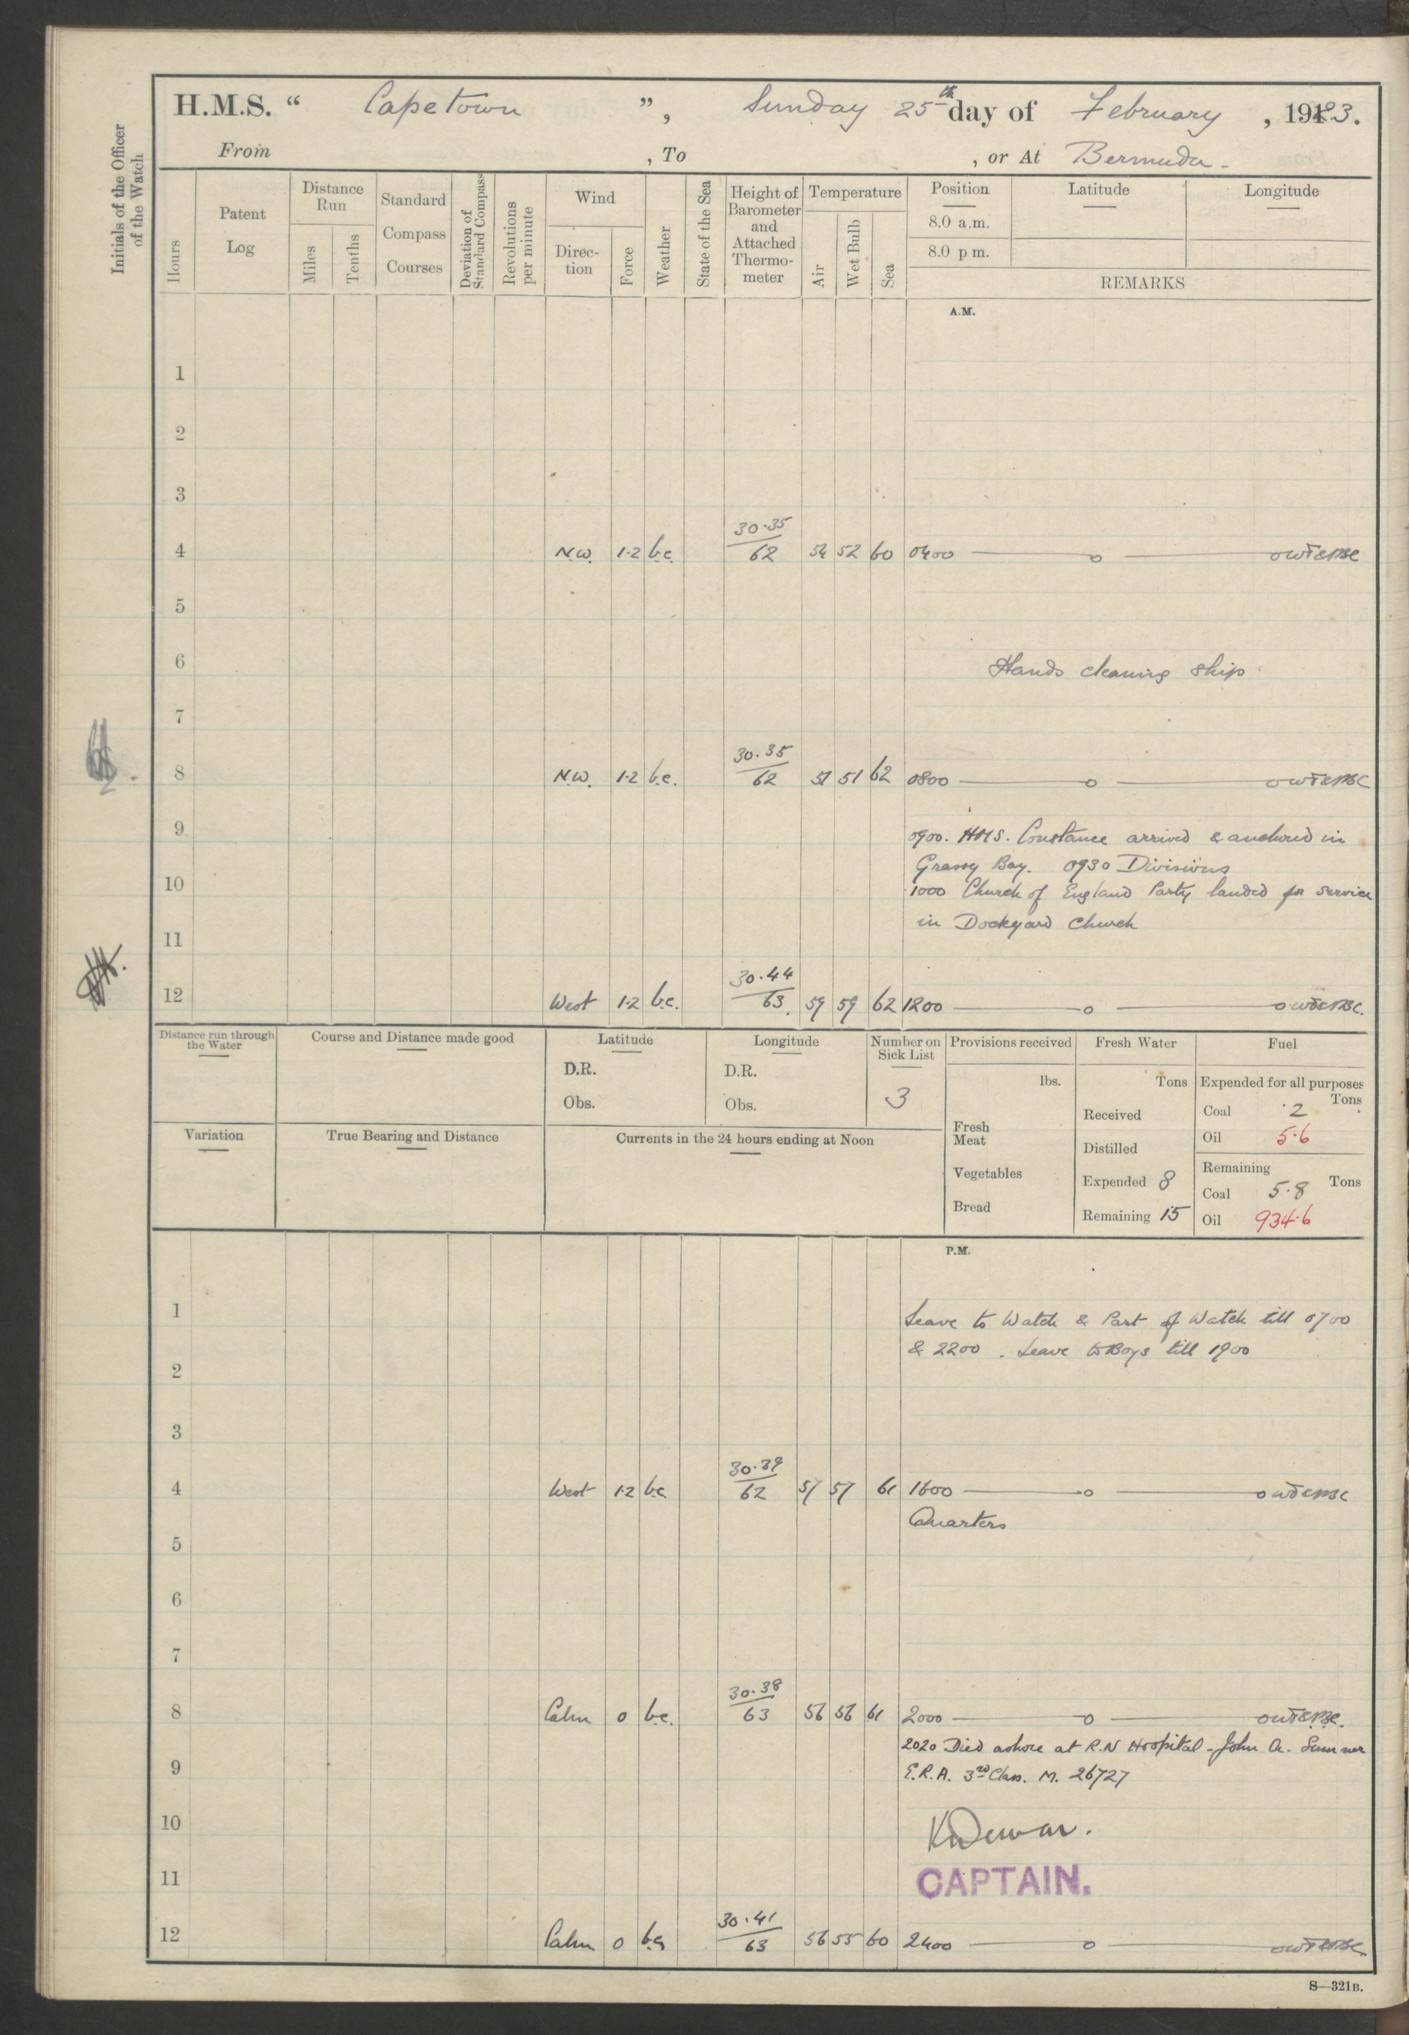 H.M.S. “ Capetown ”, Sunday 25th day of February , 1923.
From , To , or At Bermuda.
Initials of the Officer of the Watch
Hours
Patent Log
Distance Run
Miles
Tenths
Standard Compass Courses
Deviation of Standard Compass
Revolutions per minute
Wind
Direction
Force
Weather
State of the Sea
Height of Barometer and Attached Thermometer
Temperature
Air
Wet Bulb
Sea
Position Latitude Longitude
8.0 a.m.
8.0 p m.
REMARKS
A.M.
1
2
3
4 N.W. 1-2 b.c. 30.35/62 54 52 60 0400
5
6 Hands cleaning ship
7
8 N.W. 1-2 b.c. 30.35/62 51 51 62 0800
9 0900. HMS. Constance arrived & anchored in
Grassy Bay. 0930 Divisions
10 1000 Church of England Party landed for service
in Dockyard Church
11
12 West 1-2 b.c. 30.44/63 59 59 62 1200
Distance run through the Water
Course and Distance made good
Latitude
D.R.
Obs.
Longitude
D.R.
Obs.
Number on Sick List
3
Provisions received
lbs.
Fresh Meat
Vegetables
Bread
Fresh Water
Tons
Received
Distilled
Expended 8
Remaining 15
Fuel
Expended for all purposes
Tons
Coal .2
Oil 5.6
Remaining
Tons
Coal 5.8
Oil 934.6
Variation
True Bearing and Distance
Currents in the 24 hours ending at Noon
P.M.
1 Leave to Watch & Part of Watch till 0700
& 2200. Leave to Boys till 1900
2
3
4 West 1-2 b.c. 30.39/62 57 57 61 1600
Quarters
5
6
7
8 Calm 0 b.c. 30.38/63 56 56 61 2000
2020 Died ashore at R.N Hospital - John A. Sumner
9 E.R.A. 3rd Class. M. 26727
10 KDewar.
11 CAPTAIN.
12 Calm 0 30.41/63 56 55 60 2400
S—321B.